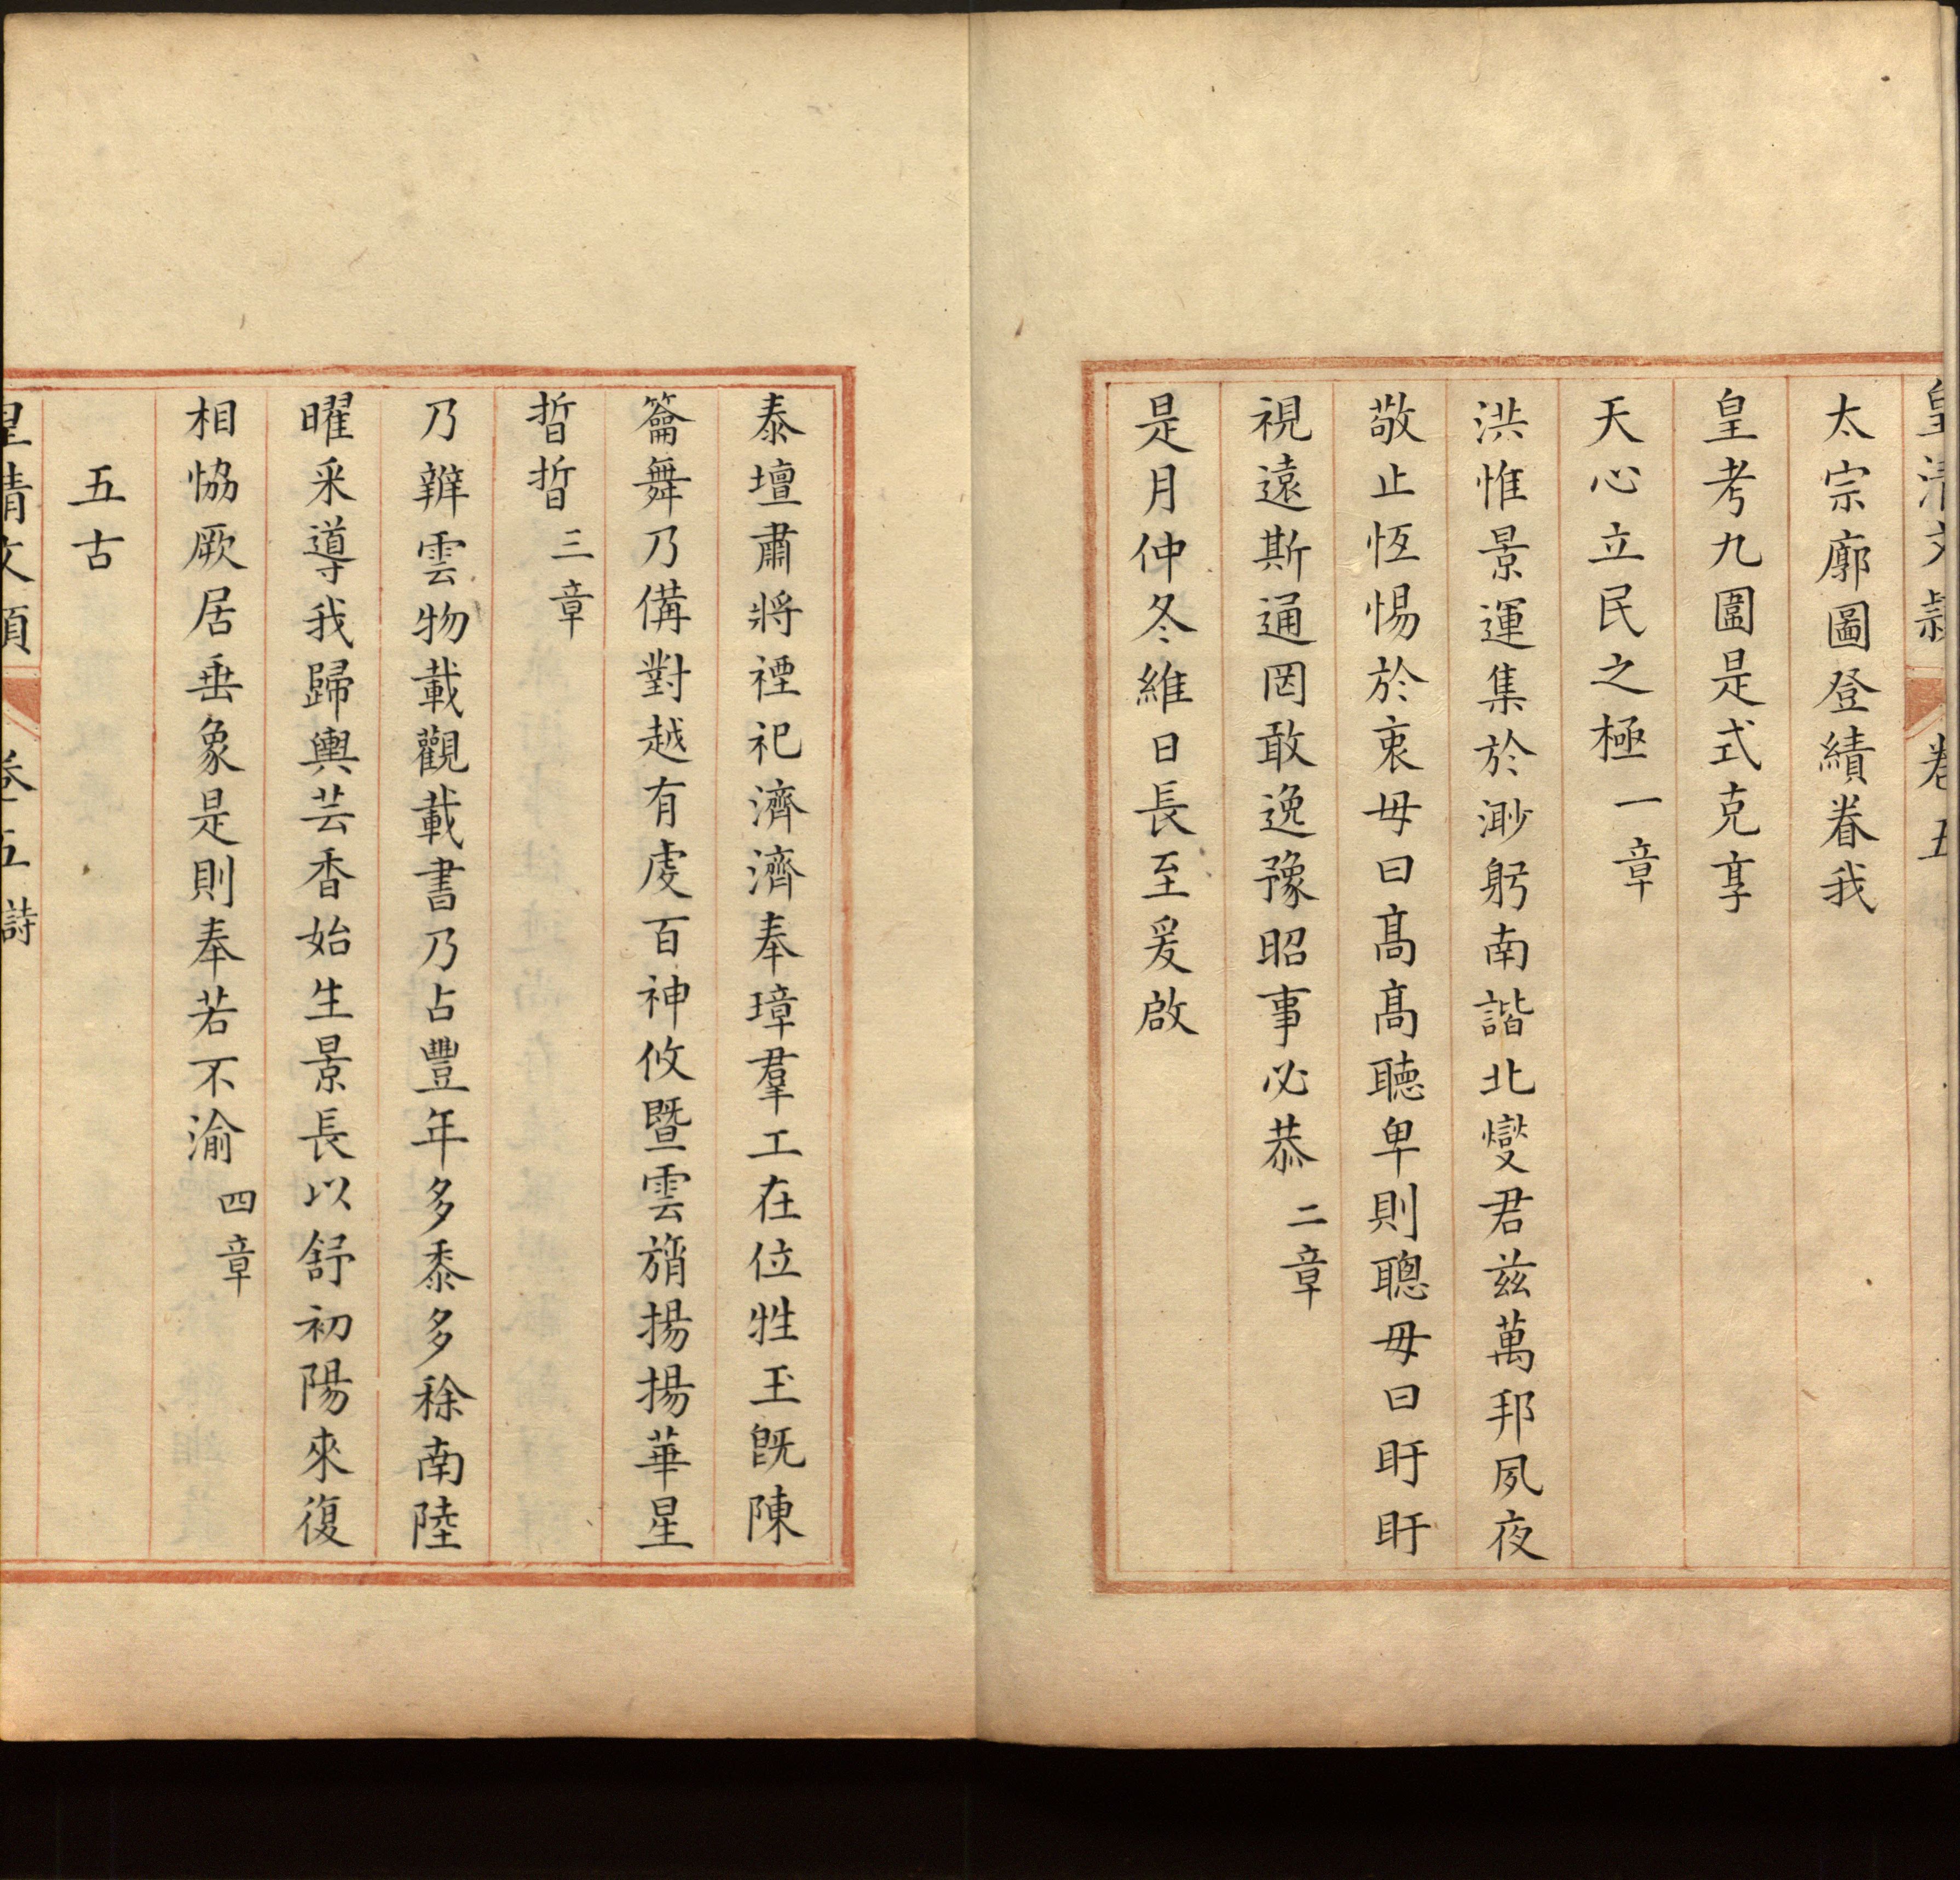 皇清文穎 卷五
太宗廓圖登績眷我
皇考九圍是式克享
天心立民之極一章
洪惟景運集於渺躬南諧北燮君兹萬邦夙夜
敬止恆惕於衷毋曰髙髙聽卑則聰毋曰盱盱
視遠斯通罔敢逸豫昭事必恭二章
是月仲冬維日長至爰啟
泰壇肅將禋祀濟濟奉璋羣工在位牲玉旣陳
籥舞乃備對越有虔百神攸暨雲旓揚揚華星
晢晢三章
乃辨雲物載觀載書乃占豐年多黍多稌南陸
曜采導我歸輿芸香始生景長以舒初陽來復
相恊厥居垂象是則奉若不渝四章
五古
皇清文穎 卷五 詩